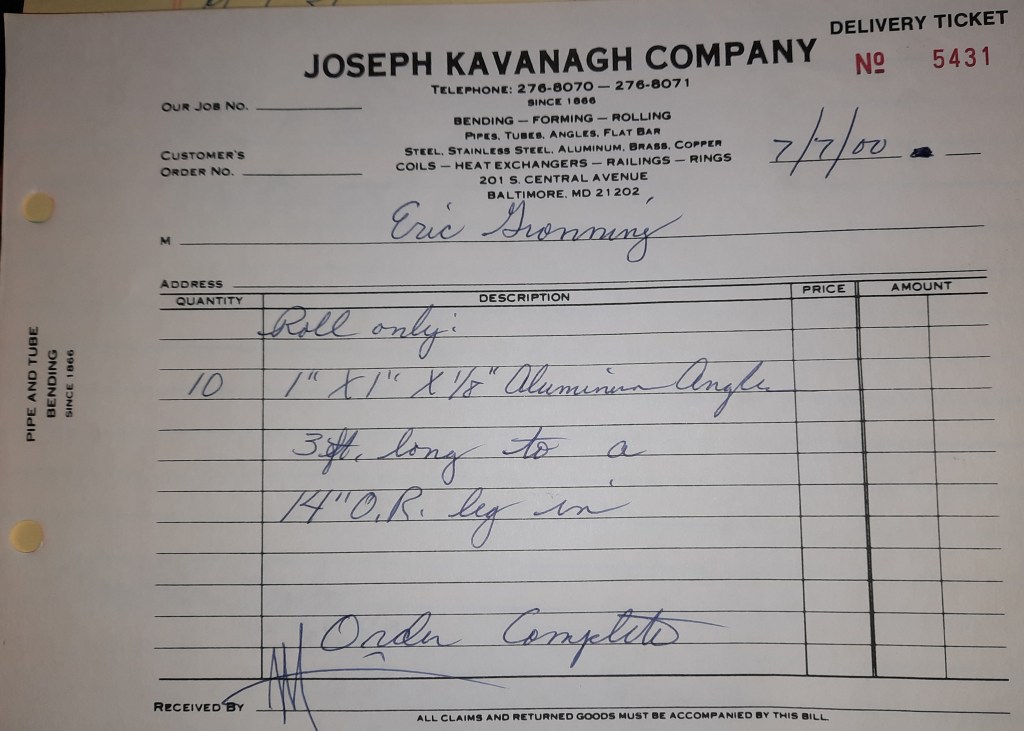 DELIVERY TICKET
JOSEPH KAVANAGH COMPANY
Nº 5431
TELEPHONE: 276-8070 — 276-8071
SINCE 1866
OUR JOB NO.
BENDING — FORMING — ROLLING
PIPES, TUBES, ANGLES, FLAT BAR
STEEL, STAINLESS STEEL, ALUMINUM, BRASS, COPPER
CUSTOMER'S
ORDER NO.
COILS — HEAT EXCHANGERS — RAILINGS — RINGS
7/7/00
201 S. CENTRAL AVENUE
BALTIMORE, MD 21202
M Eric Gronning
ADDRESS
QUANTITY DESCRIPTION PRICE AMOUNT
Roll only:
10 1" X 1" X 1/8" Aluminum Angle
3 ft. long to a
14" O.R. leg in
Order Complete
RECEIVED BY
ALL CLAIMS AND RETURNED GOODS MUST BE ACCOMPANIED BY THIS BILL
PIPE AND TUBE
BENDING
SINCE 1866